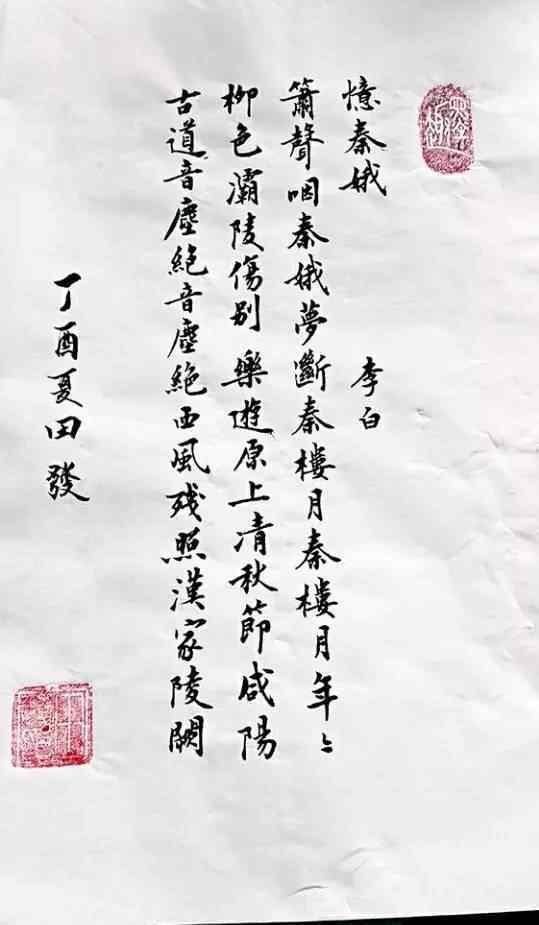 憶秦娥
李白
簫聲咽秦娥夢斷秦樓月秦樓月年〻
柳色灞陵傷別樂遊原上清秋節咸陽
古道音塵絶音塵絶西風残照漢家陵闕
丁酉夏田發